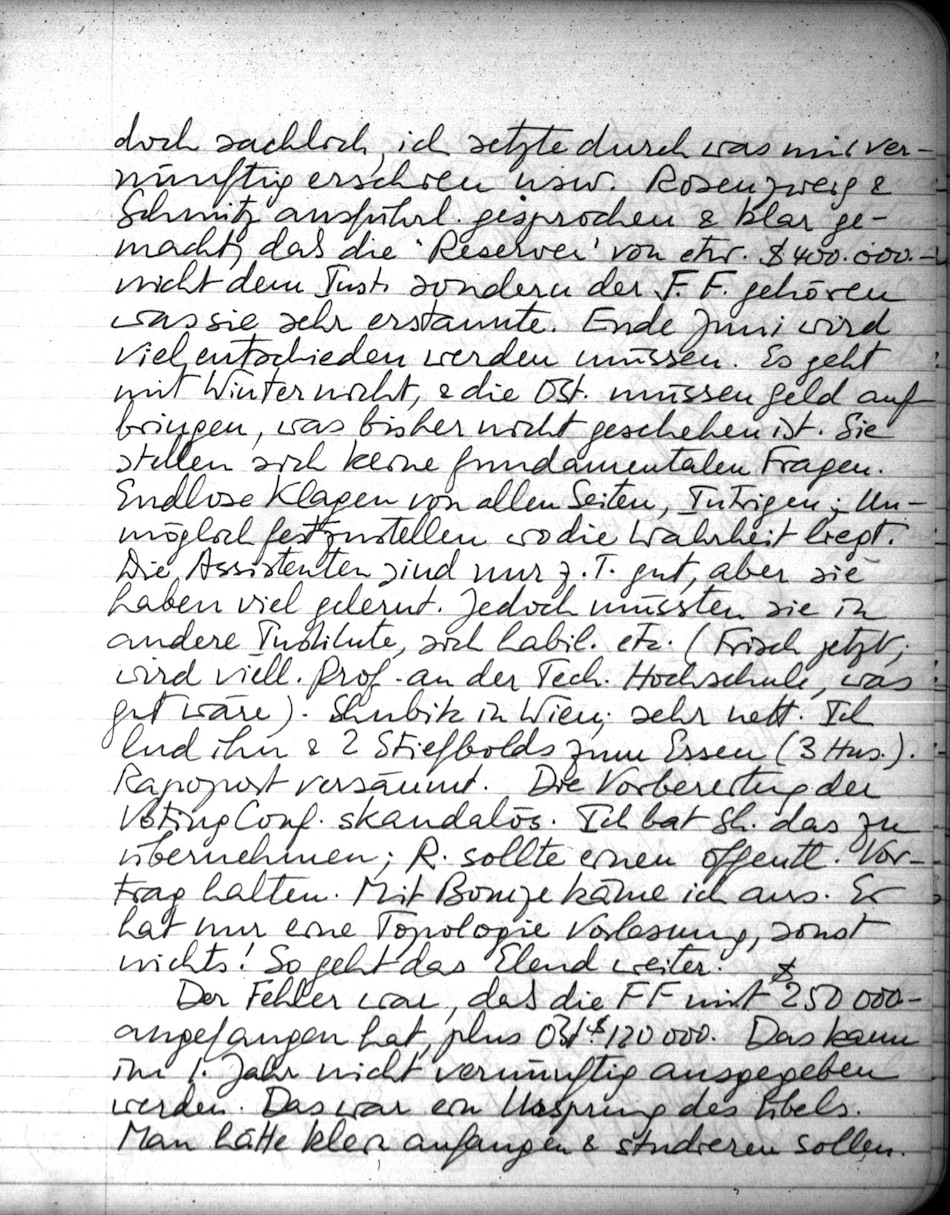 doch sachlich, ich setzte durch was mir ver-
nünftig erschien usw. Rosenzweig &
Schmitz ausführl. gesprochen & klar ge-
macht, daß die 'Reserven' von etw. $ 400.000.–
nicht dem Inst. sondern der F.F. gehören
was sie sehr erstaunte. Ende Juni wird
viel entschieden werden müssen. Es geht
mit Winter nicht, & die Öst. müssen Geld auf
bringen, was bisher nicht geschehen ist. Sie
stellen sich keine fundamentalen Fragen.
Endlose Klagen von allen Seiten, Intrigen; Un-
möglich festzustellen wo die Wahrheit liegt.
Die Assistenten sind nur z.T. gut, aber sie
haben viel gelernt. Jedoch müssten sie in
andere Institute, sich habil. etc. (Frisch jetzt;
wird viell. Prof. an der Tech. Hochschule, was
gut wäre). Shubik in Wien; sehr nett. Ich
lud ihn & 2 Stiefbolds zum Essen (3 Hus.).
Rapoport versäumt. Die Vorbereitung der
Voting Conf. skandalös. Ich bat Sh. das zu
übernehmen; R. sollte einen öffentl. Vor-
trag halten. Mit Bonze käme ich aus. Er
hat nur eine Topologie Vorlesung, sonst
nichts! So geht das Elend weiter.
Der Fehler war, daß die FF mit $ 250 000–
angefangen hat, plus Öst $ 120 000. Das kann
im 1. Jahr nicht vernünftig ausgegeben
werden. Das war ein Ursprung des Übels.
Man hätte klein anfangen & studieren sollen.